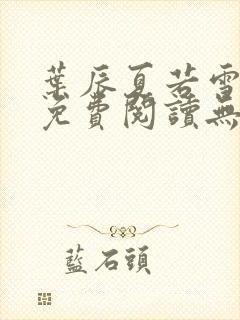 葉辰夏若雪
免費閱讀無
藍石頭